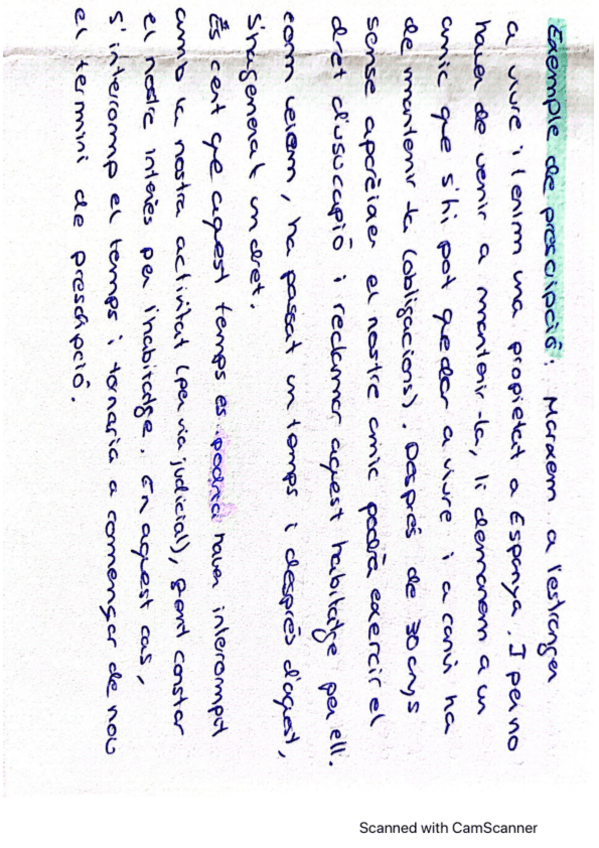 Exemple de prescripció. Marxem a l'estranger
a viure i tenim una propietat a Espanya. I per no
haver de venir a mantenir-la, li demanem a un
amic que s'hi pot quedar a viure i a canvi ha
de mantenir-la (obligacions). Després de 30 anys
sense aparèixer el nostre amic podrà exercir el
dret d'usucapió i reclamar aquest habitatge per ell.
com veiem, ha passat un temps i després d'aquest,
s'ha generat un dret.
És cert que aquest temps es podria haver interromput
amb la nostra activitat (per via judicial), fent constar
el nostre interès per l'habitatge. En aquest cas,
s'interromp el temps i tornaria a començar de nou
el termini de prescripció.
Scanned with CamScanner